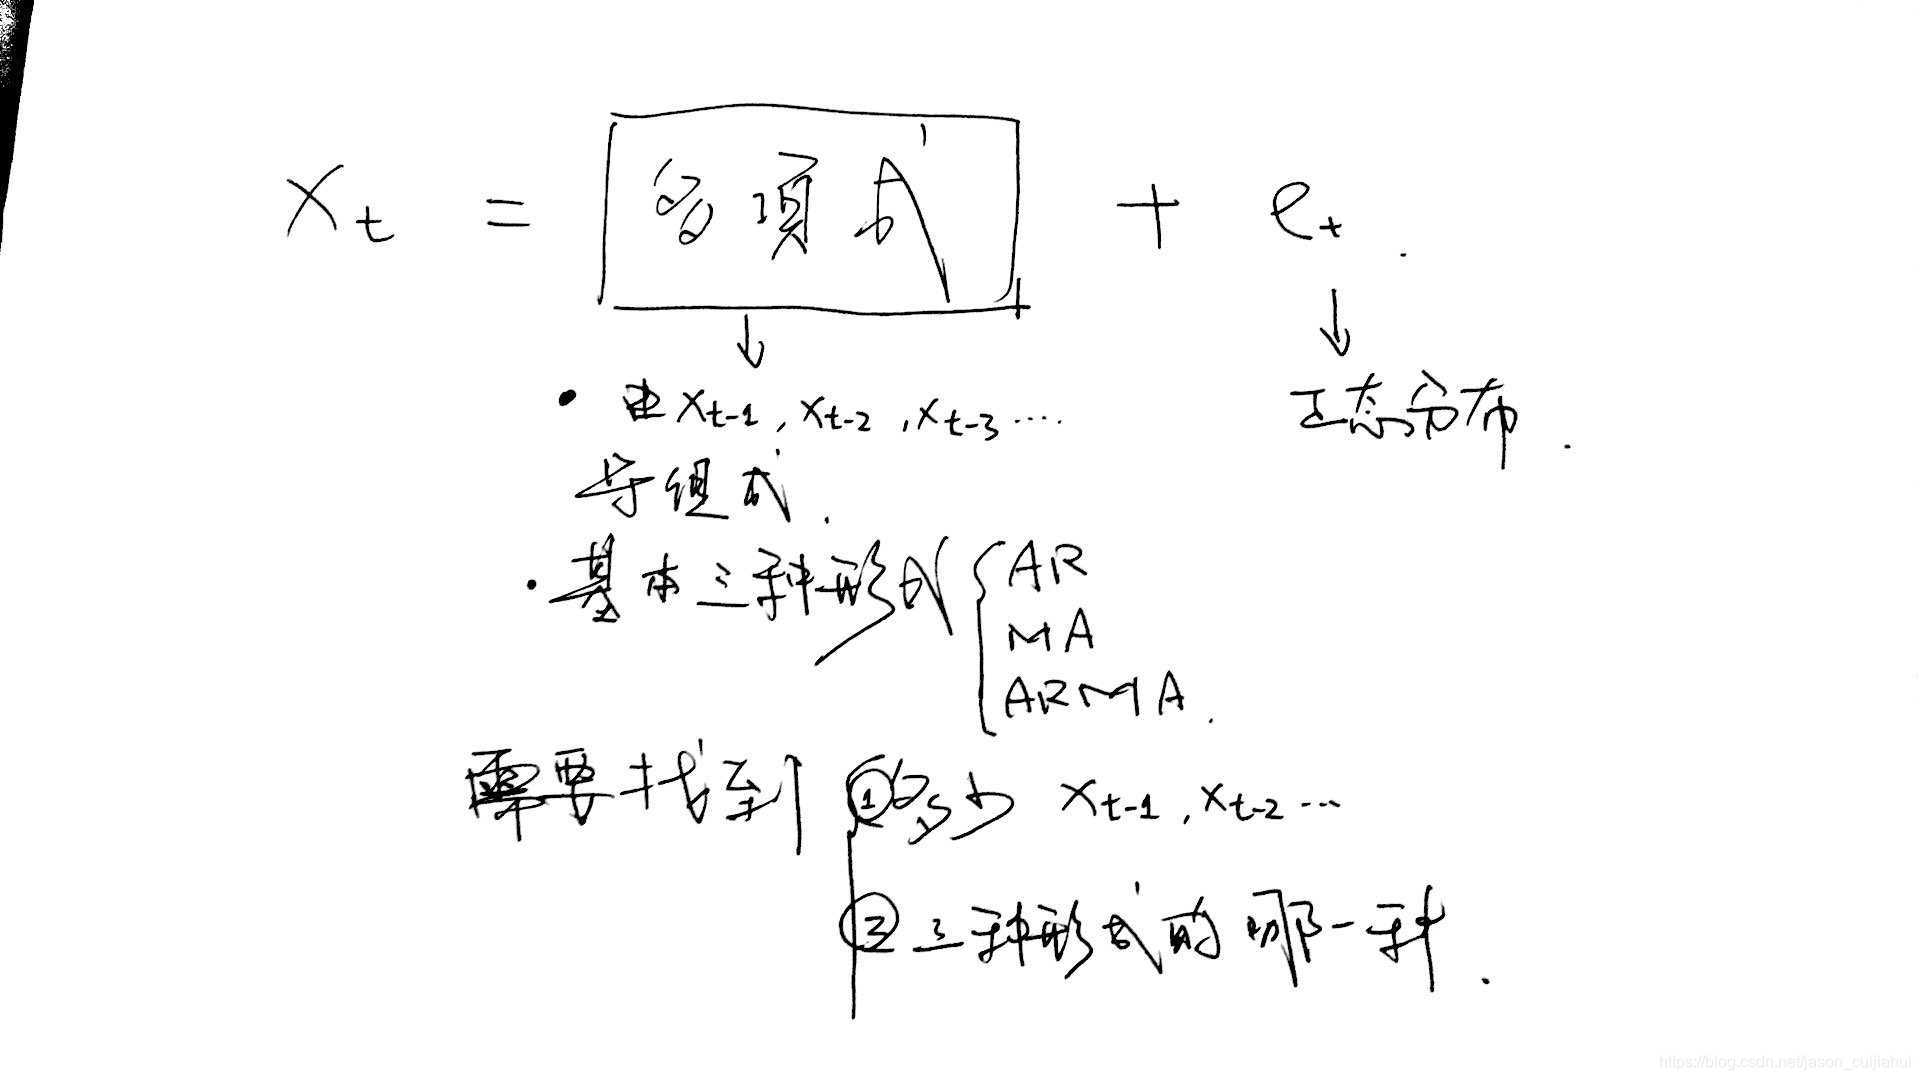 Xt = 多項式 + et.
正态分布.
• 由 Xt-1, Xt-2, Xt-3 ....
等组成.
• 基本三种形式 { AR
MA
ARMA.
需要找到 ① 多少 Xt-1, Xt-2 ...
② 三种形式的哪一种.
https://blog.csdn.net/jason_cuijiahui